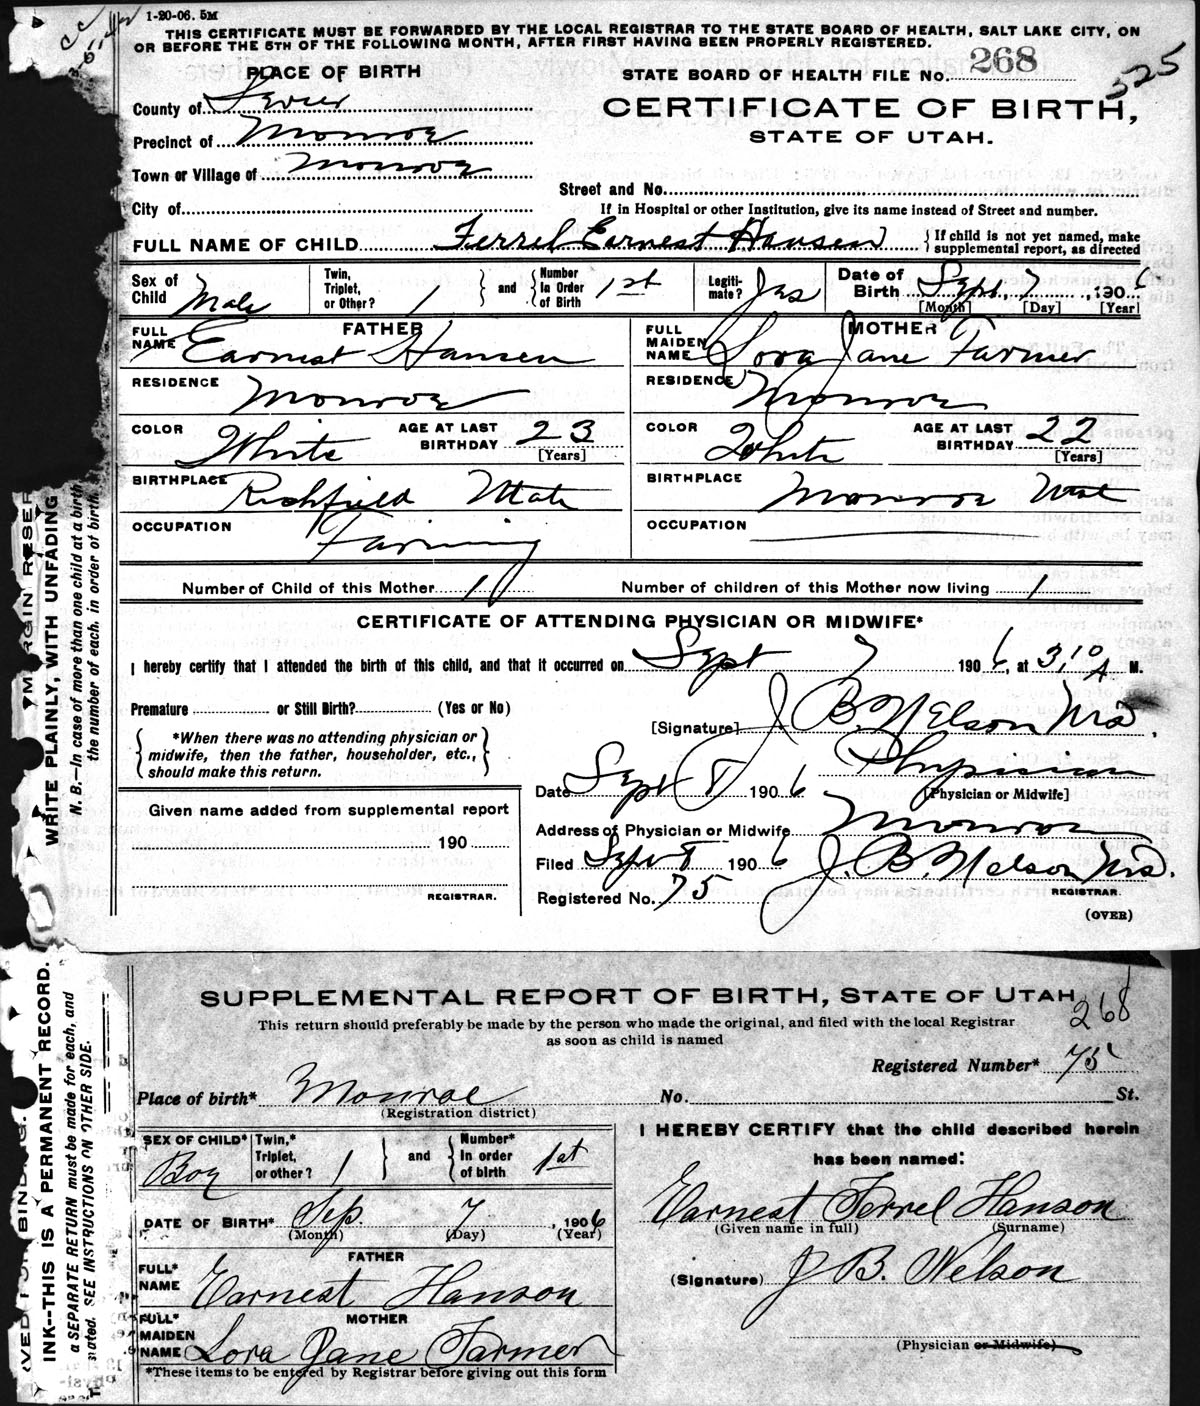 1-20-06. 5M
THIS CERTIFICATE MUST BE FORWARDED BY THE LOCAL REGISTRAR TO THE STATE BOARD OF HEALTH, SALT LAKE CITY, ON
OR BEFORE THE 5TH OF THE FOLLOWING MONTH, AFTER FIRST HAVING BEEN PROPERLY REGISTERED.
PLACE OF BIRTH
STATE BOARD OF HEALTH FILE No. 268
525
County of Sevier
CERTIFICATE OF BIRTH,
STATE OF UTAH.
Precinct of Monroe
Town or Village of Monroe
Street and No.
City of
If in Hospital or other Institution, give its name instead of Street and number.
FULL NAME OF CHILD Ferrel Earnest Hansen
If child is not yet named, make
supplemental report, as directed
Sex of Child Male
Twin, Triplet, or Other? 1
and
Number In Order of Birth 1st
Legiti-mate? Yes
Date of Birth Sept. 7, 1906
[Month] [Day] [Year]
FATHER
FULL NAME Earnest Hansen
RESIDENCE Monroe
COLOR White
AGE AT LAST BIRTHDAY 23
[Years]
BIRTHPLACE Richfield Utah
OCCUPATION Farming
MOTHER
FULL MAIDEN NAME Lora Jane Farmer
RESIDENCE Monroe
COLOR White
AGE AT LAST BIRTHDAY 22
[Years]
BIRTHPLACE Monroe Utah
OCCUPATION
Number of Child of this Mother 1
Number of children of this Mother now living 1
CERTIFICATE OF ATTENDING PHYSICIAN OR MIDWIFE*
I hereby certify that I attended the birth of this child, and that it occurred on Sept 7 1906, at 3,10 A M.
Premature or Still Birth? (Yes or No)
*When there was no attending physician or
midwife, then the father, householder, etc.,
should make this return.
[Signature] J B. Nelson
Physician
[Physician or Midwife]
Date Sept 8 1906
Address of Physician or Midwife Monroe
Filed Sept 8 1906 J. B. Nelson
REGISTRAR.
Registered No. 75
(OVER)
Given name added from supplemental report
190
REGISTRAR.
WRITE PLAINLY, WITH UNFADING INK--THIS IS A PERMANENT RECORD.
N. B.—In case of more than one child at a birth a SEPARATE RETURN must be made for each, and
the number of each, in order of birth, stated. SEE INSTRUCTIONS ON OTHER SIDE.
SUPPLEMENTAL REPORT OF BIRTH, STATE OF UTAH
268
This return should preferably be made by the person who made the original, and filed with the local Registrar
as soon as child is named
Registered Number* 75
Place of birth* Monroe No. St.
(Registration district)
SEX OF CHILD* Boy
Twin,* Triplet, or other? 1
and
Number* In order of birth 1st
DATE OF BIRTH* Sep. 7, 1906
(Month) (Day) (Year)
FATHER
FULL* NAME Earnest Hanson
MOTHER
FULL* MAIDEN NAME Lora Jane Farmer
*These items to be entered by Registrar before giving out this form
I HEREBY CERTIFY that the child described herein
has been named:
Earnest Ferrel Hanson
(Given name in full) (Surname)
(Signature) J B. Nelson
(Physician or Midwife)